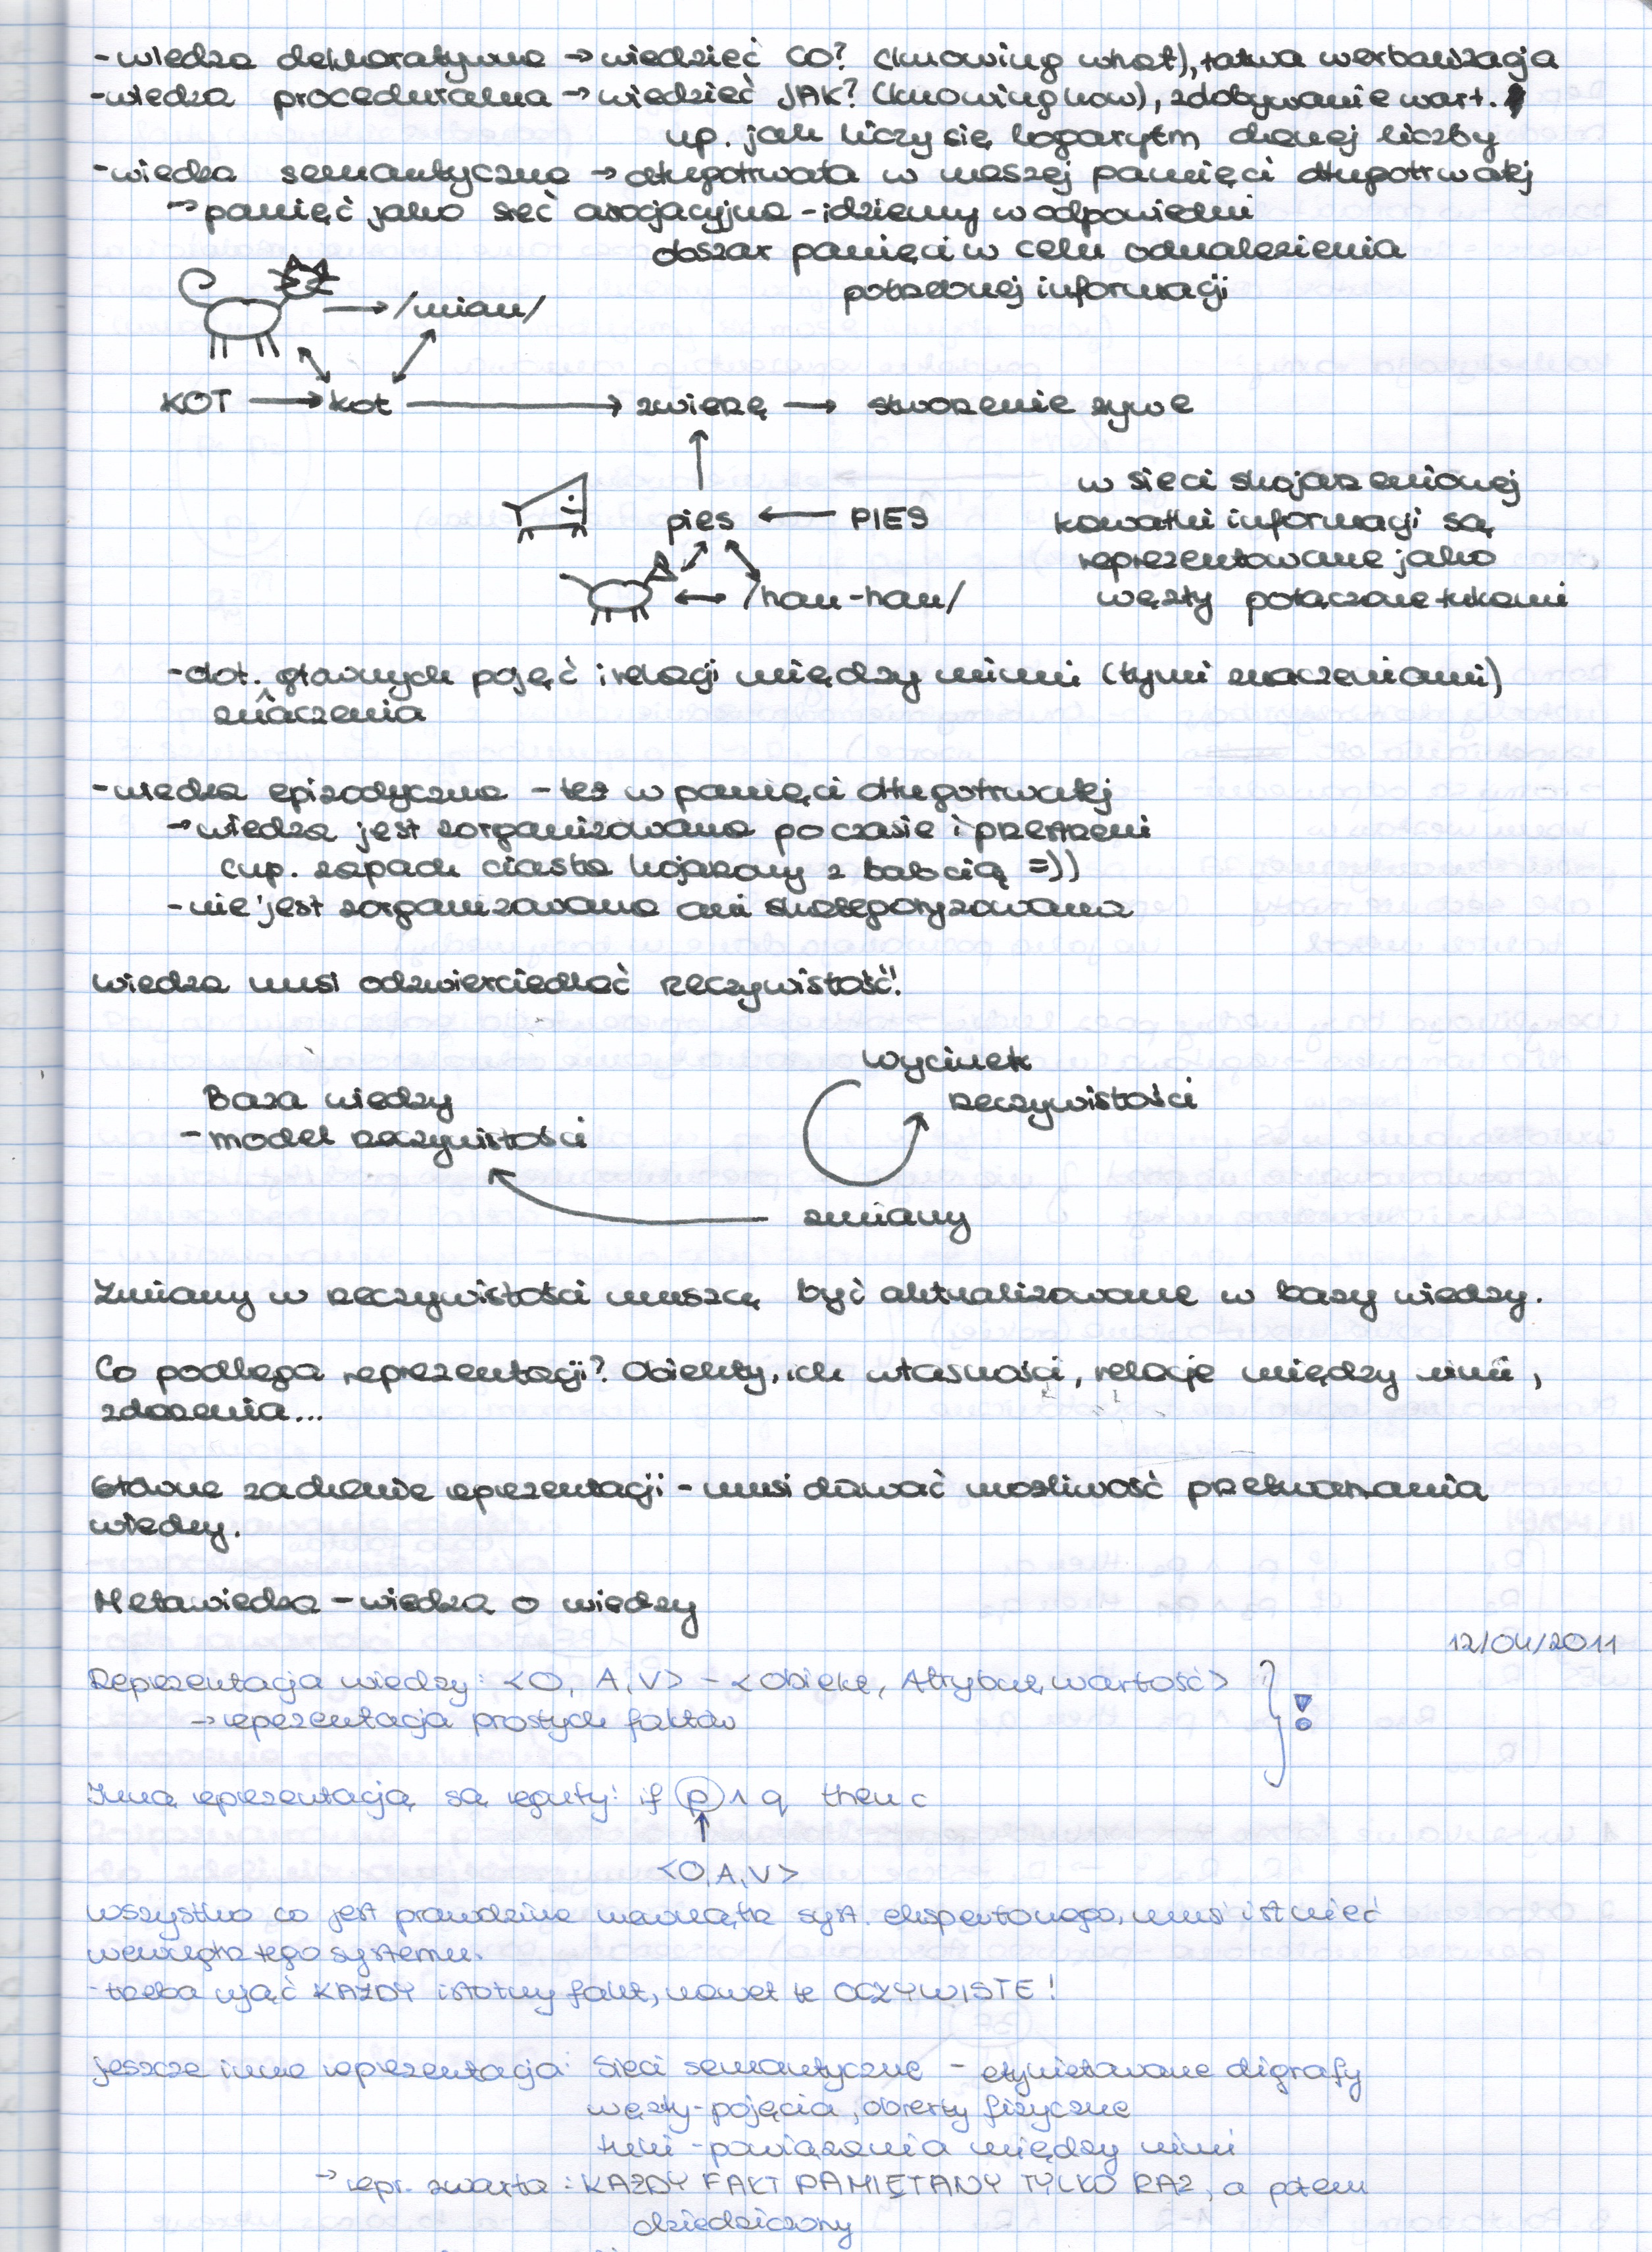 -wiedza deklaratywna → wiedzieć CO? (knowing what), łatwa werbalizacja
-wiedza proceduralna → wiedzieć JAK? (knowing how), zdobywanie wart.
np. jak liczy się logarytm danej liczby
-wiedza semantyczna → długotrwała w naszej pamięci długotrwałej
→ pamięć jako sieć asocjacyjna - idziemy w odpowiedni
obszar pamięci w celu odnalezienia
potrzebnej informacji
→ /miau/
KOT → kot → zwierzę → stworzenie żywe
w sieci skojarzeniowej
pies ← PIES
kawałki informacji są
reprezentowane jako
↔ /hau-hau/
węzły połączone łukami
-dot. głównych pojęć i relacji między nimi (tymi znaczeniami)
znaczenia
-wiedza epizodyczna - też w pamięci długotrwałej
→ wiedza jest zorganizowana po czasie i przestrzeni
(np. zapach ciasta kojarzony z babcią =))
-nie jest zorganizowana ani skategoryzowana
wiedza musi odzwierciedlać rzeczywistość!
wycinek
rzeczywistości
Baza wiedzy
- model rzeczywistości
zmiany
Zmiany w rzeczywistości muszą być aktualizowane w bazy wiedzy.
Co podlega reprezentacji? Obiekty, ich własności, relacje między nimi,
zdarzenia...
Główne zadanie reprezentacji - musi dawać możliwość przetwarzania
wiedzy.
Metawiedza - wiedza o wiedzy
12/04/2011
Reprezentacja wiedzy: <O, A, V> - <Obiekt, Atrybut, wartość>
→ reprezentacja prostych faktów
!
Inną reprezentacją są reguły: if p ∧ q then c
<O, A, V>
wszystko co jest prawdziwe wewnątrz syst. ekspertowego, musi istnieć
wewnątrz tego systemu.
-trzeba ująć KAŻDY istotny fakt, nawet te OCZYWISTE!
jeszcze inna reprezentacja: Sieci semantyczne - etykietowane digrafy
węzły-pojęcia, obiekty fizyczne
łuki - powiązania między nimi
→ repr. zwarta: KAŻDY FAKT PAMIĘTANY TYLKO RAZ, a potem
dziedziczony